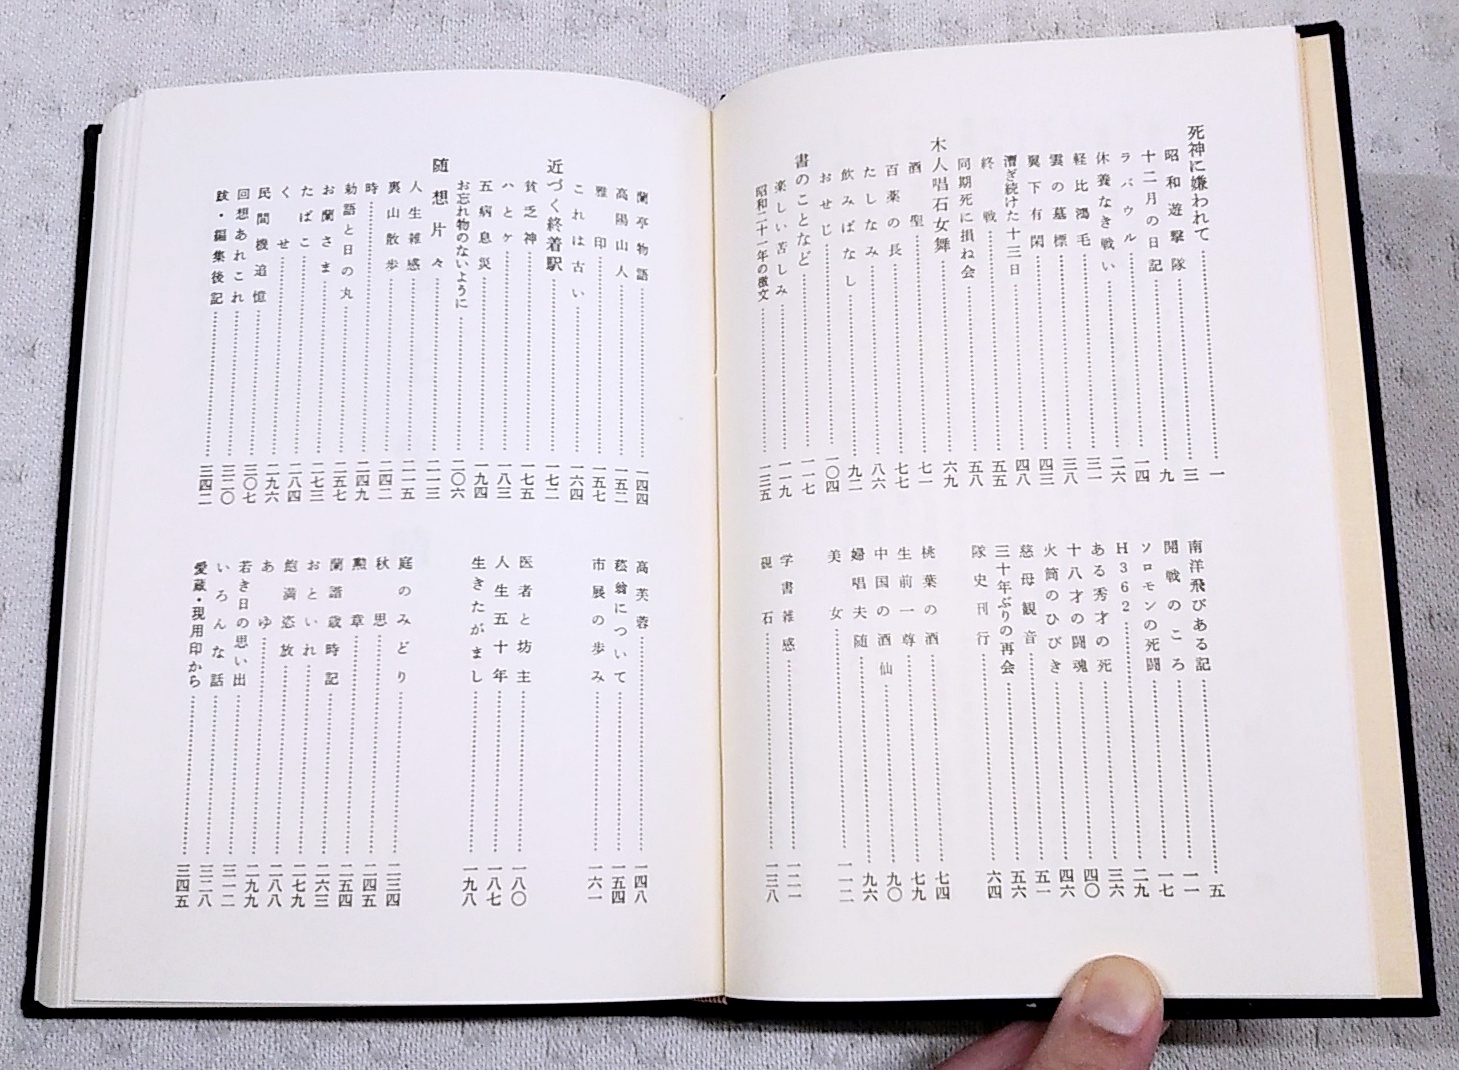 死神に嫌われて……一
昭和遊撃隊……三
十二月の日記……九
ラバウル……一四
休養なき戦い……二六
軽比鴻毛……三一
雲の墓標……三八
翼下有閑……四三
漕ぎ続けた十三日……四八
終戦……五五
同期死に損ね会……五八
木人唱石女舞……六九
酒聖……七一
百薬の長……七七
たしなみ……八六
飲みばなし……九二
おせじ……一〇四
書のことなど……一一七
楽しい苦しみ……一一九
昭和二十一年の檄文……一三五
南洋飛びある記……五
開戦のころ……一一
ソロモンの死闘……一七
H362……二九
ある秀才の死……三六
十八才の闘魂……四〇
火筒のひびき……四六
慈母観音……五一
三十年ぶりの再会……五六
隊史刊行……六四
桃葉の酒……七四
生前一尊……七九
中国の酒仙……九〇
婦唱夫随……九六
美女……一一二
学書雑感……一二一
硯石……一三八
蘭亭物語……一四四
高陽山人……一五二
雅印……一五七
これは古い……一六四
近づく終着駅……一七二
貧乏神……一七五
ハとケ……一八三
五病息災……一九四
お忘れ物のないように……二〇六
随想片々……二一三
人生雑感……二一五
裏山散歩……二四二
時……二四九
勅語と日の丸……二五七
お蘭さま……二七三
たばこ……二八四
くせ……二九六
民間機追憶……三〇七
回想あれこれ……三二〇
跋・編集後記……三四二
高芙蓉……一四八
菘翁について……一五四
市展の歩み……一六一
医者と坊主……一八〇
人生五十年……一八七
生きたがまし……一九八
庭のみどり……二三四
秋思……二四五
勲章……二五四
蘭譜歳時記……二六三
おといれ……二七九
飽満恣放……二八八
あゆ……二九九
若き日の思い出……三一二
いろんな話……三二八
愛蔵・現用印から……三四五